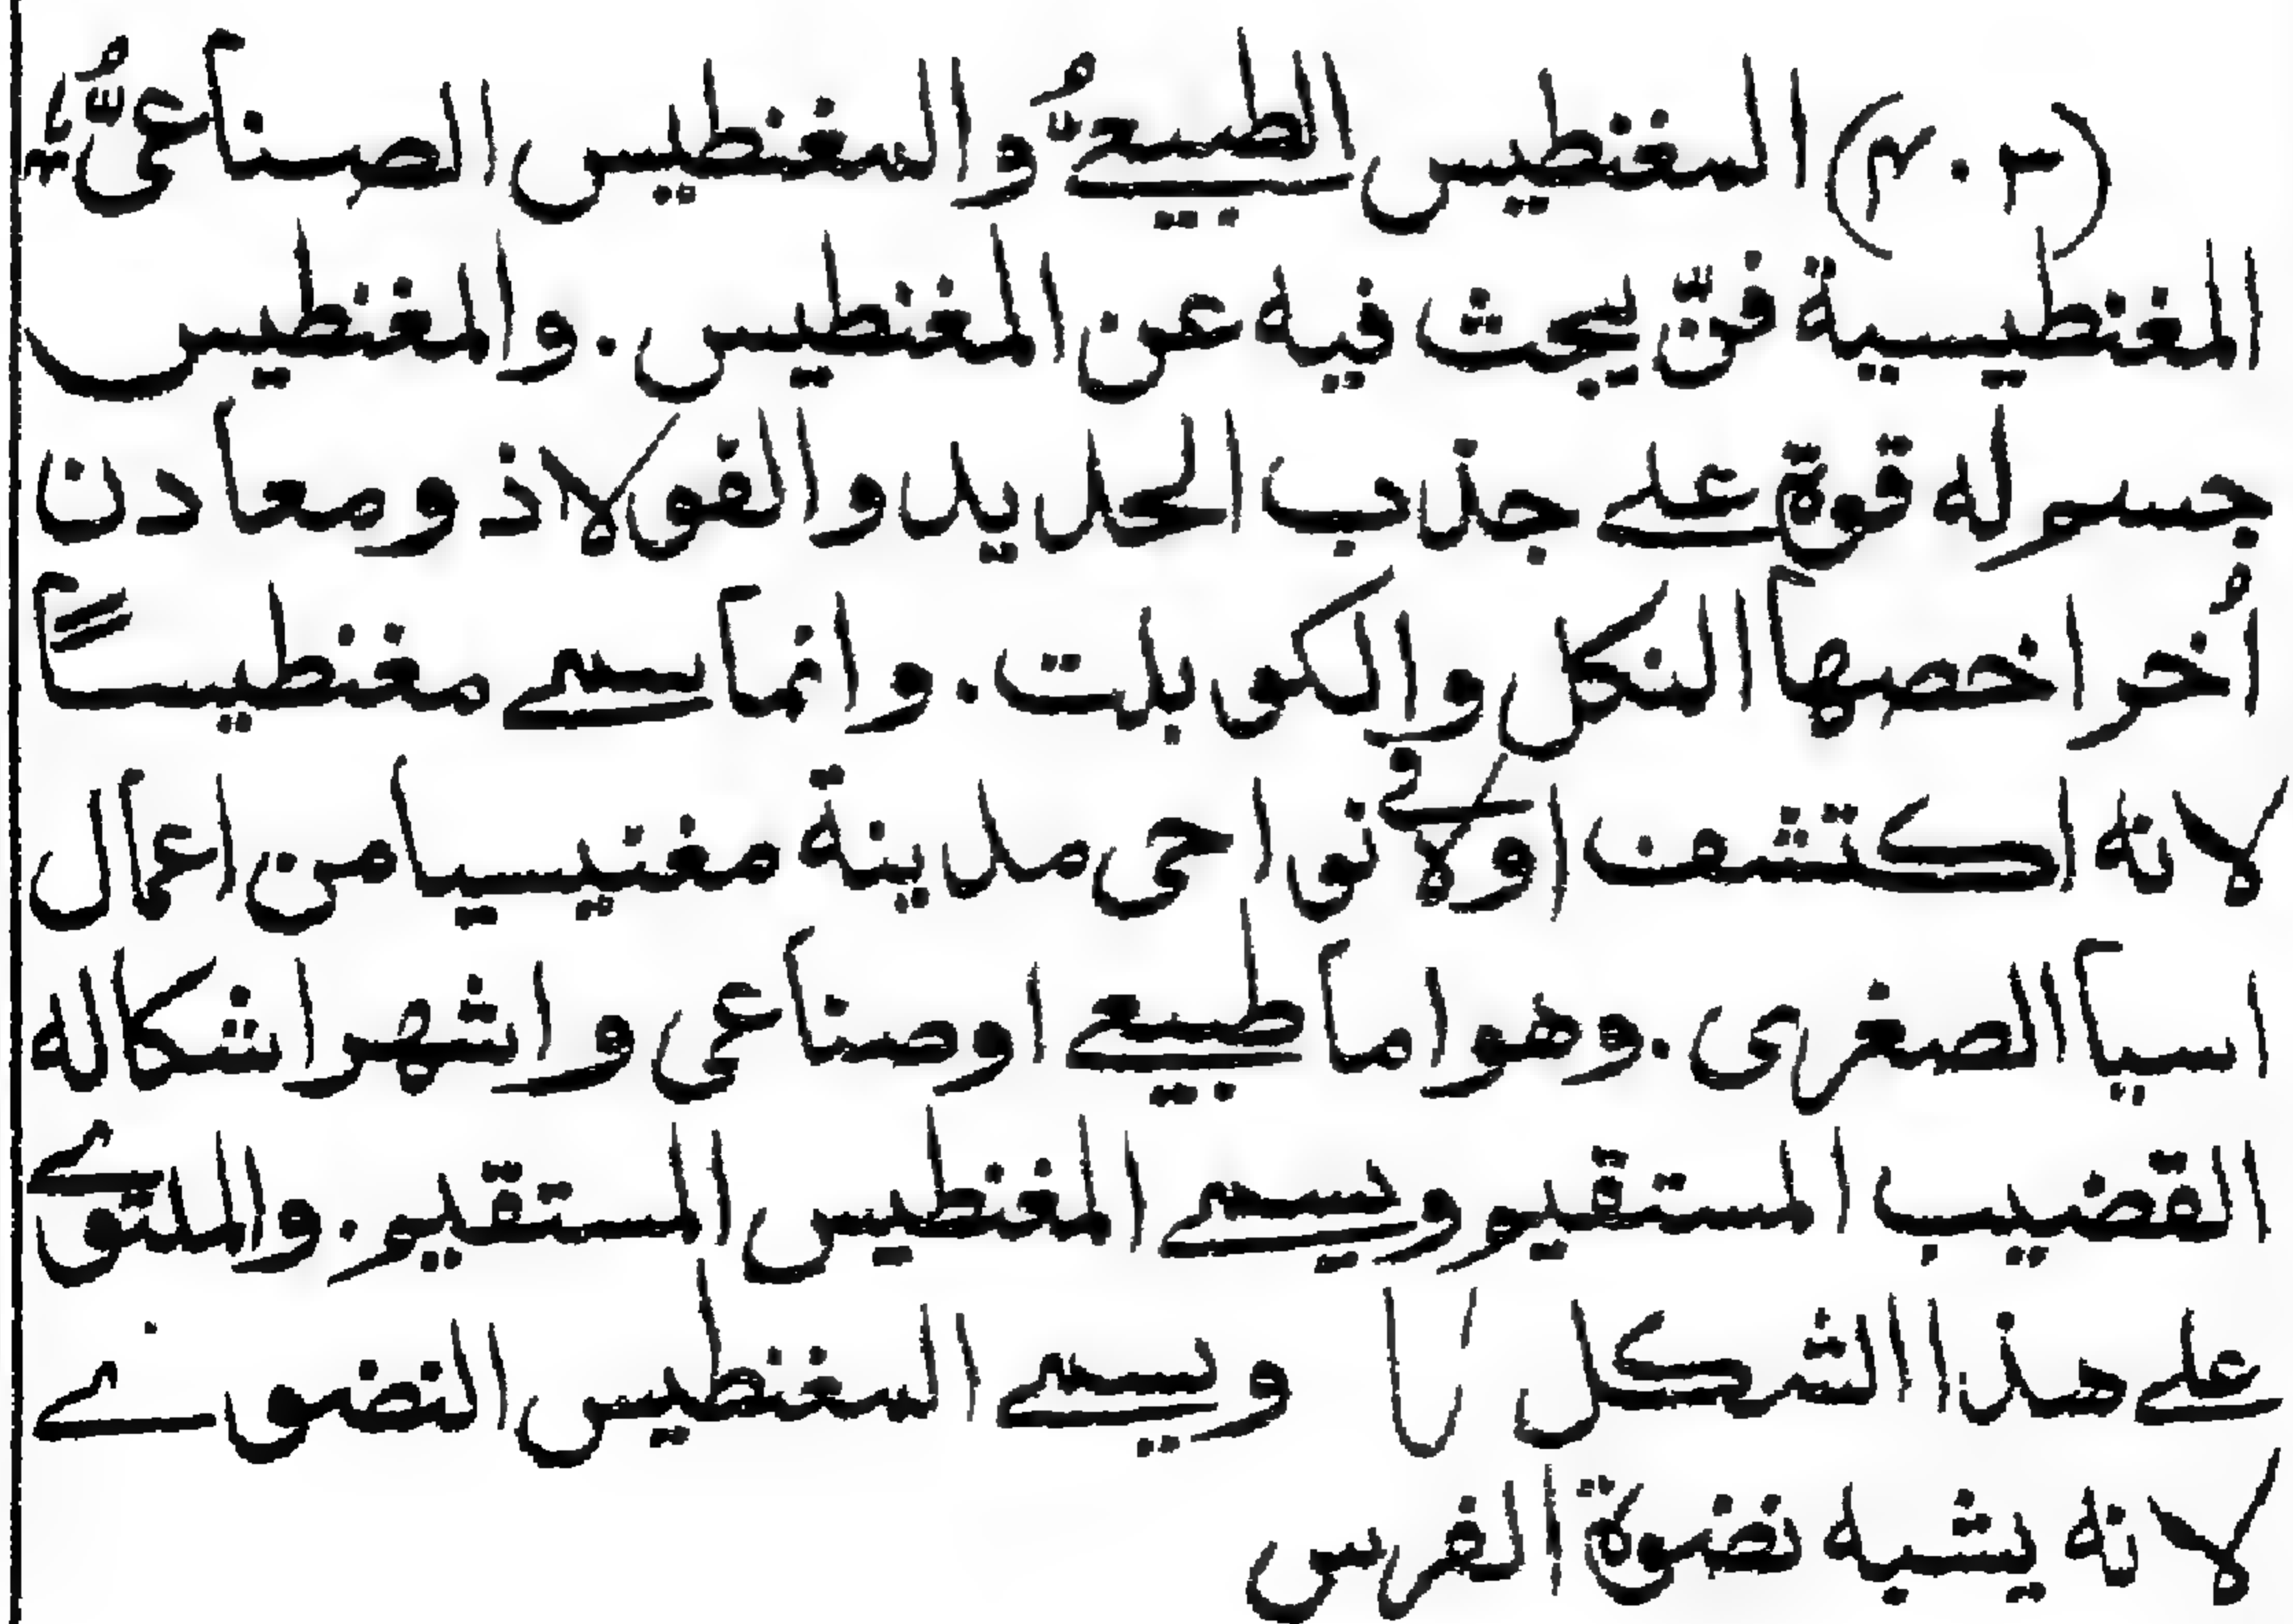 (٣٠٤) المغنطيس الطبيعيُّ والمغنطيس الصناعيُّ
المغنطيسية فنّ يبحث فيه عن المغنطيس. والمغنطيس
جسم له قوة على جذب الحديد والفولاذ ومعادن
اُخر اخصها النكل والكوبلت. وانما سمي مغنطيساً
لانه اكتشف اولا في نواحى مدينة مغنيسيا من اعمال
اسيا الصغرى. وهو اما طبيعي او صناعى واشهر اشكاله
القضيب المستقيم ويسمى المغنطيس المستقيم. والملتوي
على هذا الشكل U ويسمى المغنطيس النضوي
لانه يشبه نضوة الفرس